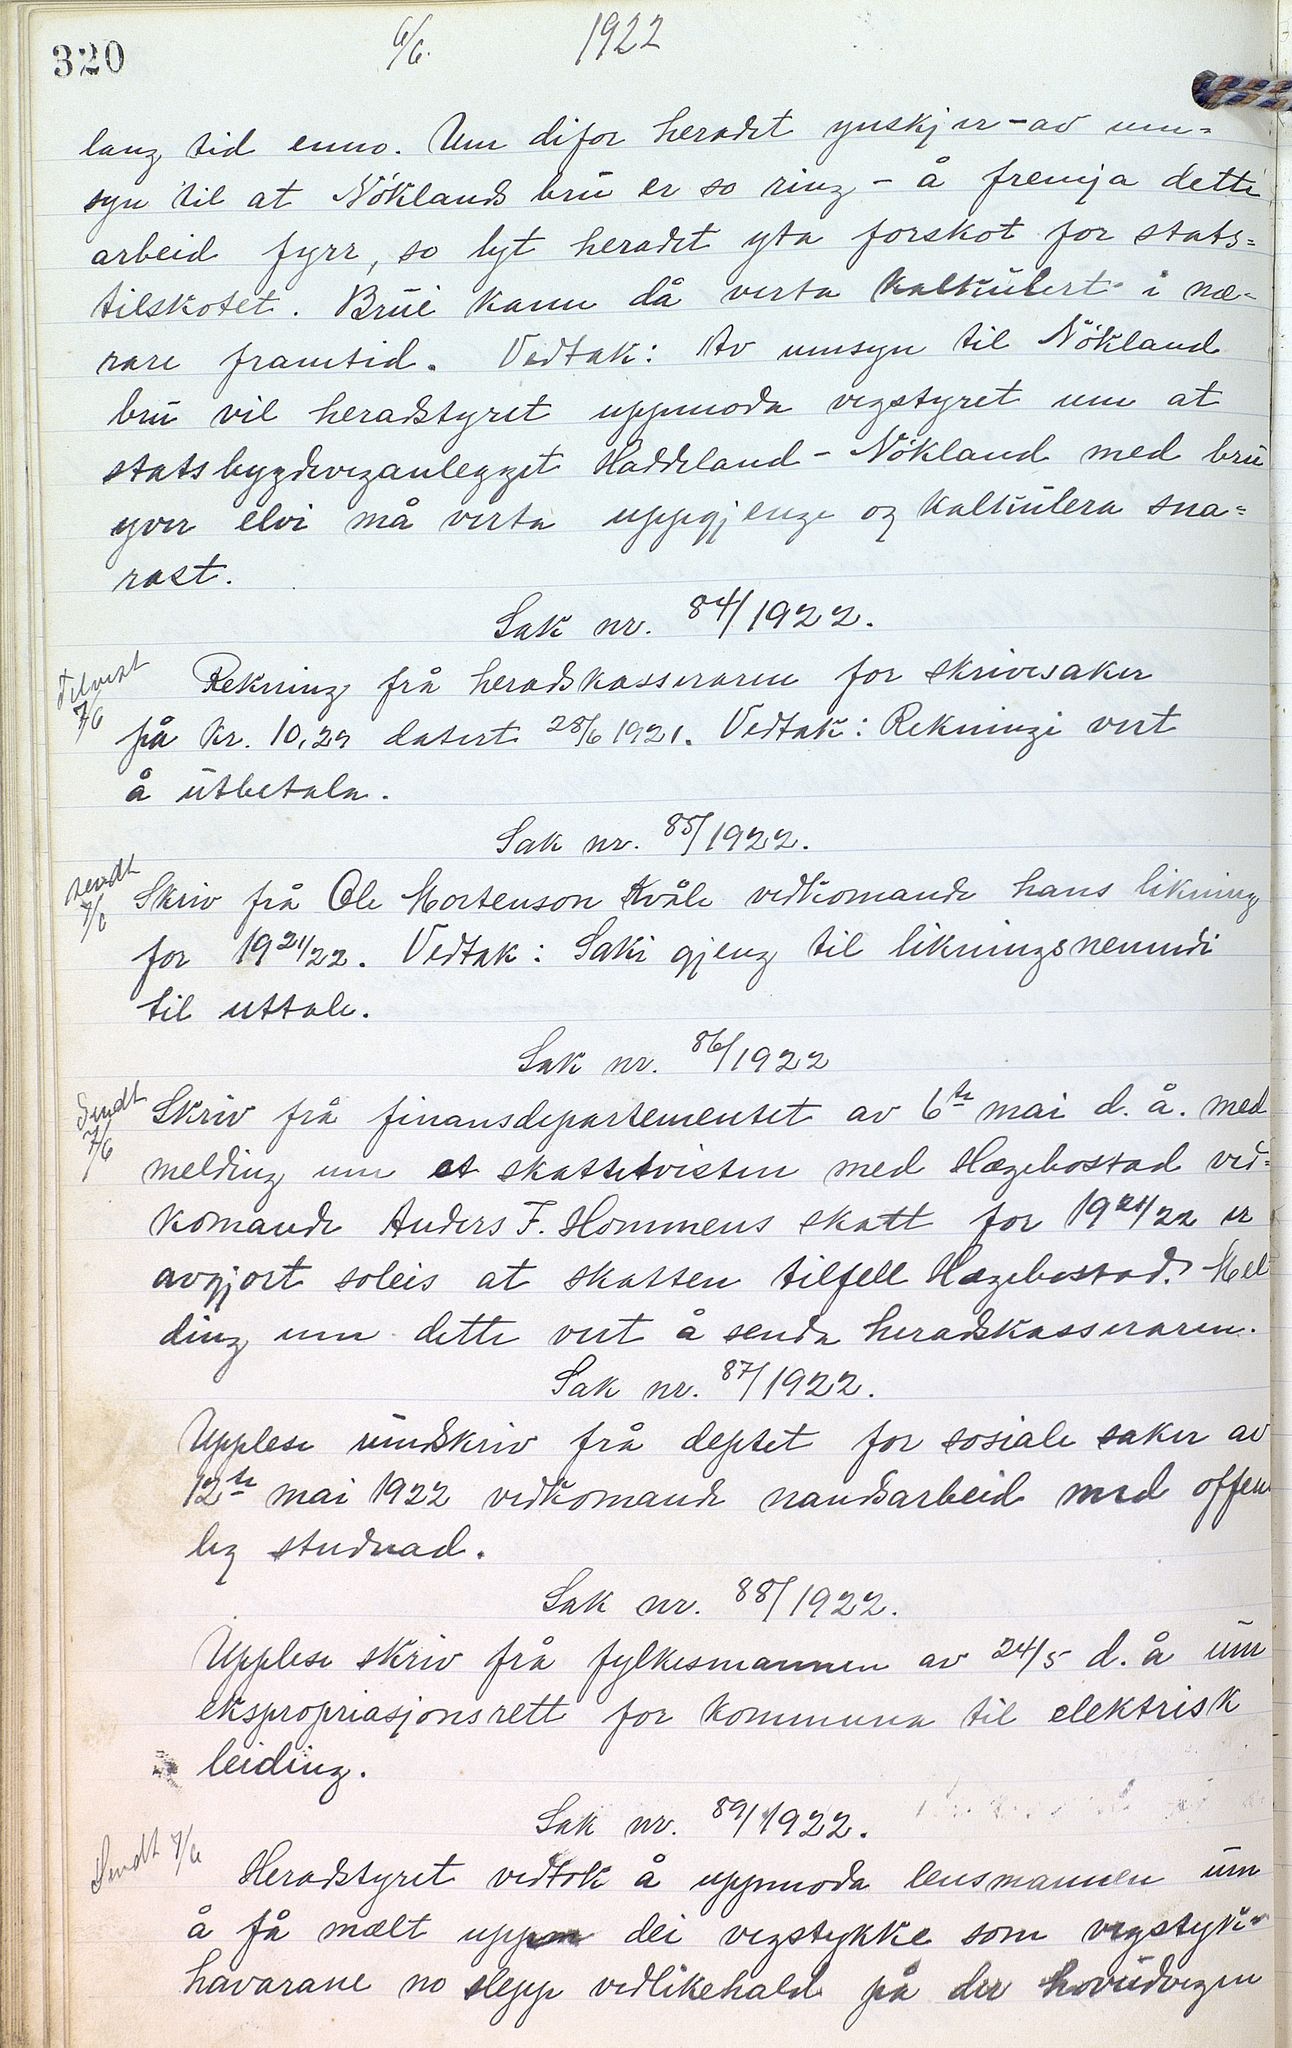 320
6/6. 1922
lang tid enno. Um difor heradet ynskjer - av um=
syn til at Nöklands bru er so ring - å fremja dette
arbeid fyrr, so lyt heradet yta forskot for stats=
tilskotet. Brui kann då verta kalkulert i næ=
rare framtid. Vedtak: Av umsyn til Nökland
bru vil heradstyret uppmoda vegstyret um at
statsbygdeveganlegget Haddeland - Nökland med bru
yver elvi må verta uppgjenge og kalkulera sna=
rast.
Sak nr. 84/1922.
Tilvist
7/6
Rekning frå heradskasseraren for skrivesaker
på kr. 10,29 datert 28/6 1921. Vedtak: Rekningi vert
å utbetala.
Sak nr. 85/1922.
sendt
7/6
Skriv frå Ole Mortenson Kvåle vedkomande hans likning
for 1921/22. Vedtak: Saki gjeng til likningsnemndi
til uttale.
Sak nr. 86/1922
Sendt
7/6
Skriv frå finansdepartementet av 6te mai d. å. med
melding um at skattetvisten med Hægebostad ved=
komande Anders F. Hommens skatt for 1921/22 er
avgjort soleis at skatten tilfell Hægebostad. Mel
ding um dette vert å senda heradskasseraren.
Sak nr. 87/1922.
Upplese rundskriv frå deptet for sosiale saker av
12te mai 1922 vedkomande naudsarbeid med offen
leg studnad.
Sak nr. 88/1922.
Upplese skriv frå fylkesmannen av 24/5 d. å um
ekspropriasjonsrett for kommuna til elektrisk
leiding.
Sak nr. 89/1922.
Sendt 7/6
Heradstyret vedtok å uppmoda lensmannen um
å få mælt upp dei vegstykke som vegstyk=
havarane no slepp vedlikehald på der hovudvegen